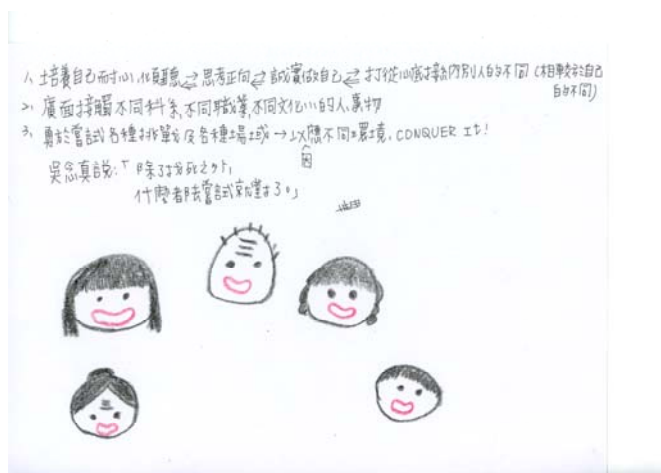 1、培養自己耐心,傾聽⇄思考正向⇄誠實做自己⇄打從心底接納別人的不同(相較於自己的不同)
2、廣面接觸不同科系,不同職業,不同文化…的人事物
3、勇於嘗試各種挑戰及各種場域→以因應不同環境,CONQUER It!
吳念真說:「除了找死之外,
什麼都去嘗試就對了。」